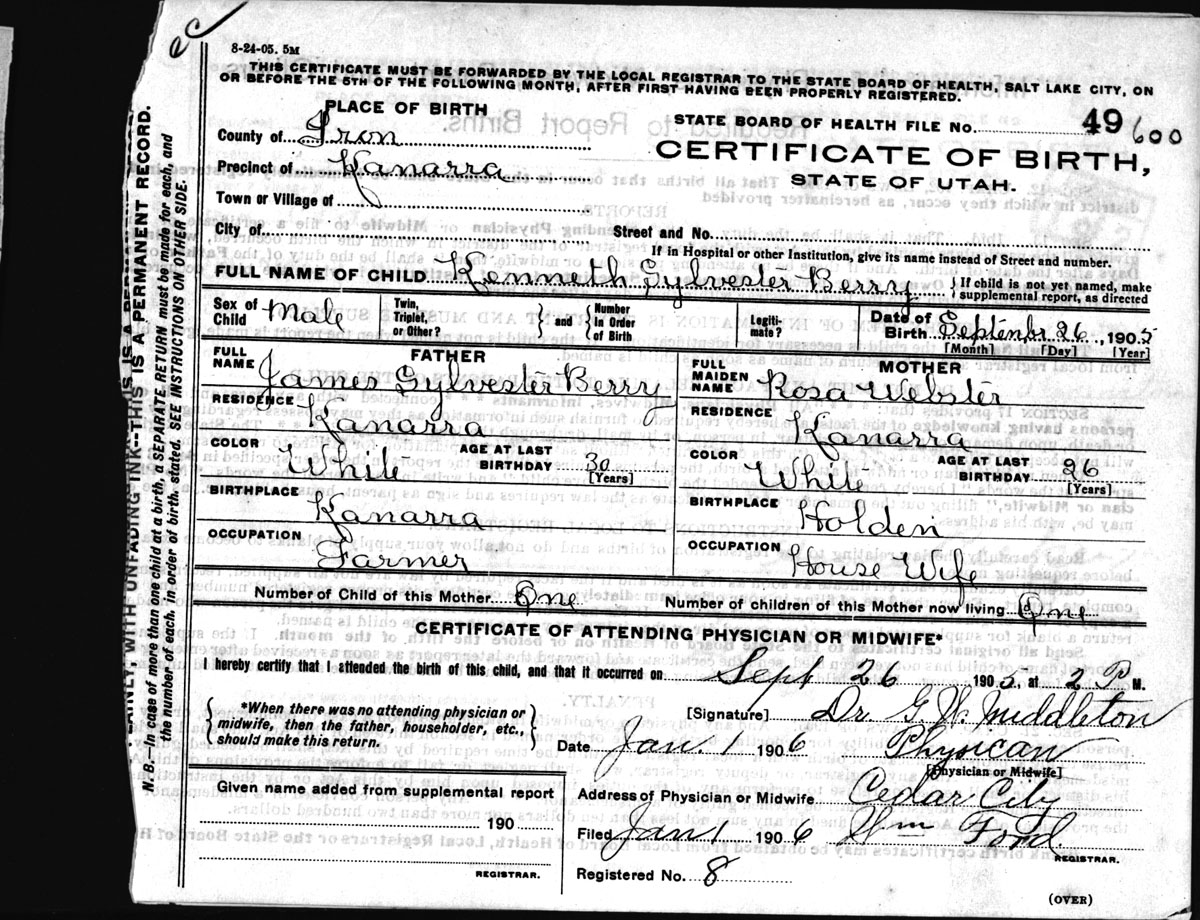 8-24-05. 5M
THIS CERTIFICATE MUST BE FORWARDED BY THE LOCAL REGISTRAR TO THE STATE BOARD OF HEALTH, SALT LAKE CITY, ON
OR BEFORE THE 5TH OF THE FOLLOWING MONTH, AFTER FIRST HAVING BEEN PROPERLY REGISTERED.
PLACE OF BIRTH
County of Iron
Precinct of Kanarra
Town or Village of
City of
STATE BOARD OF HEALTH FILE No. 49600
CERTIFICATE OF BIRTH,
STATE OF UTAH.
Street and No.
If in Hospital or other Institution, give its name instead of Street and number.
FULL NAME OF CHILD Kenneth Sylvester Berry { If child is not yet named, make
supplemental report, as directed
Sex of Child Male
Twin, Triplet, or Other? } and { Number In Order of Birth
Legiti-mate?
Date of Birth Septenbr 26, 1905
[Month] [Day] [Year]
FATHER
FULL NAME James Sylvester Berry
RESIDENCE Kanarra
COLOR White AGE AT LAST BIRTHDAY 30
[Years]
BIRTHPLACE Kanarra
OCCUPATION Farmer
MOTHER
FULL MAIDEN NAME Rosa Webster
RESIDENCE Kanarra
COLOR White AGE AT LAST BIRTHDAY 26
[Years]
BIRTHPLACE Holden
OCCUPATION House Wife
Number of Child of this Mother One Number of children of this Mother now living One
CERTIFICATE OF ATTENDING PHYSICIAN OR MIDWIFE*
I hereby certify that I attended the birth of this child, and that it occurred on Sept 26 1905, at 2 P M.
{ *When there was no attending physician or
midwife, then the father, householder, etc.,
should make this return. }
[Signature] Dr. G. W. Middleton
Date Jan. 1 1906 Physican
[Physician or Midwife]
Given name added from supplemental report
190
REGISTRAR.
Address of Physician or Midwife Cedar City
Filed Jan 1 1906 Wm Ford
REGISTRAR.
Registered No. 8
(OVER)
PLAINLY, WITH UNFADING INK--THIS IS A PERMANENT RECORD.
N. B.--In case of more than one child at a birth, a SEPARATE RETURN must be made for each, and
the number of each, in order of birth, stated. SEE INSTRUCTIONS ON OTHER SIDE.